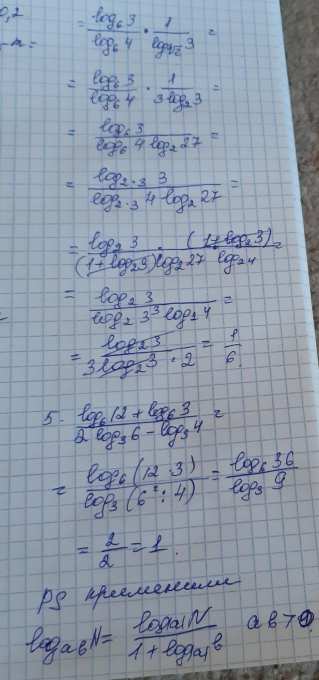 0,2
= log₆3 / log₆4 · 1 / log∛2 3 =
= log₆3 / log₆4 · 1 / 3log₂3 =
= log₆3 / log₆4 log₂27 =
= log₂.₃ 3 / log₂.₃ 4 log₂27 =
= log₂3 · (1+log₂3) / (1+log₂3) log₂27 log₂4 =
= log₂3 / log₂3³ log₂4 =
= log₂3 / 3log₂3 · 2 = 1/6.
5. log₆12 + log₆3 / 2 log₃6 − log₃4 =
= log₆(12·3) / log₃(6²:4) = log₆36 / log₃9
= 2/2 = 1.
PS применили
log_ab N = log|a|N / 1 + log|a|b ab>0